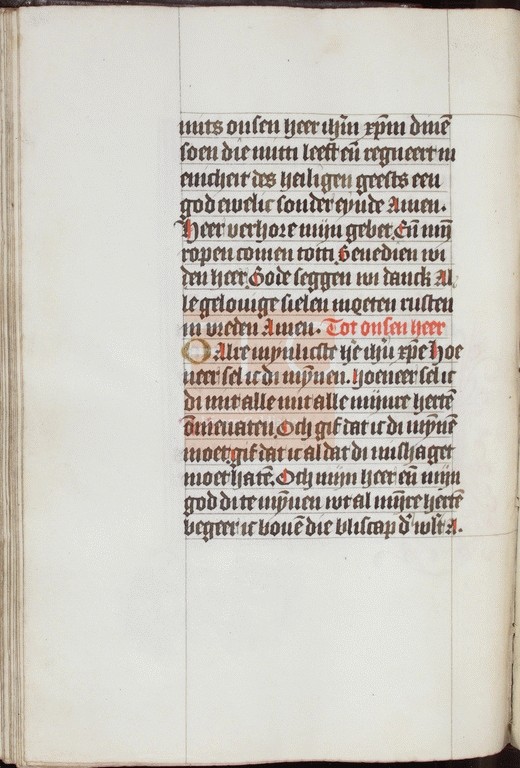 mits onsen heer ihm̄ xp̄m dinē
soen die mitti leeft en̄ regneert in
enicheit des heiligen geests een
god ewelic sonder eynde Amen.
Heer verhore mijn gebet En̄ mij̄
ropen comen totti Benedien wi
den heer Gode seggen wi danck Al
le gelouige sielen moeten rusten
in vreden Amen. Tot onsen heer
O Alre mynlicste he ihū xp̄e hoe
neer sel ic di mȳnen. hoeneer sel ic
di mit alle mit alle mijnre hertē
ōmeuaten. Och gif dat ic di mȳnē
moet gif dat ic al dat di mishaget
moet hatē. Och mijn heer en̄ mijn
god di te mȳnen wt al mijre hertē
begeer ic bouē die bliscap d' werlt A.